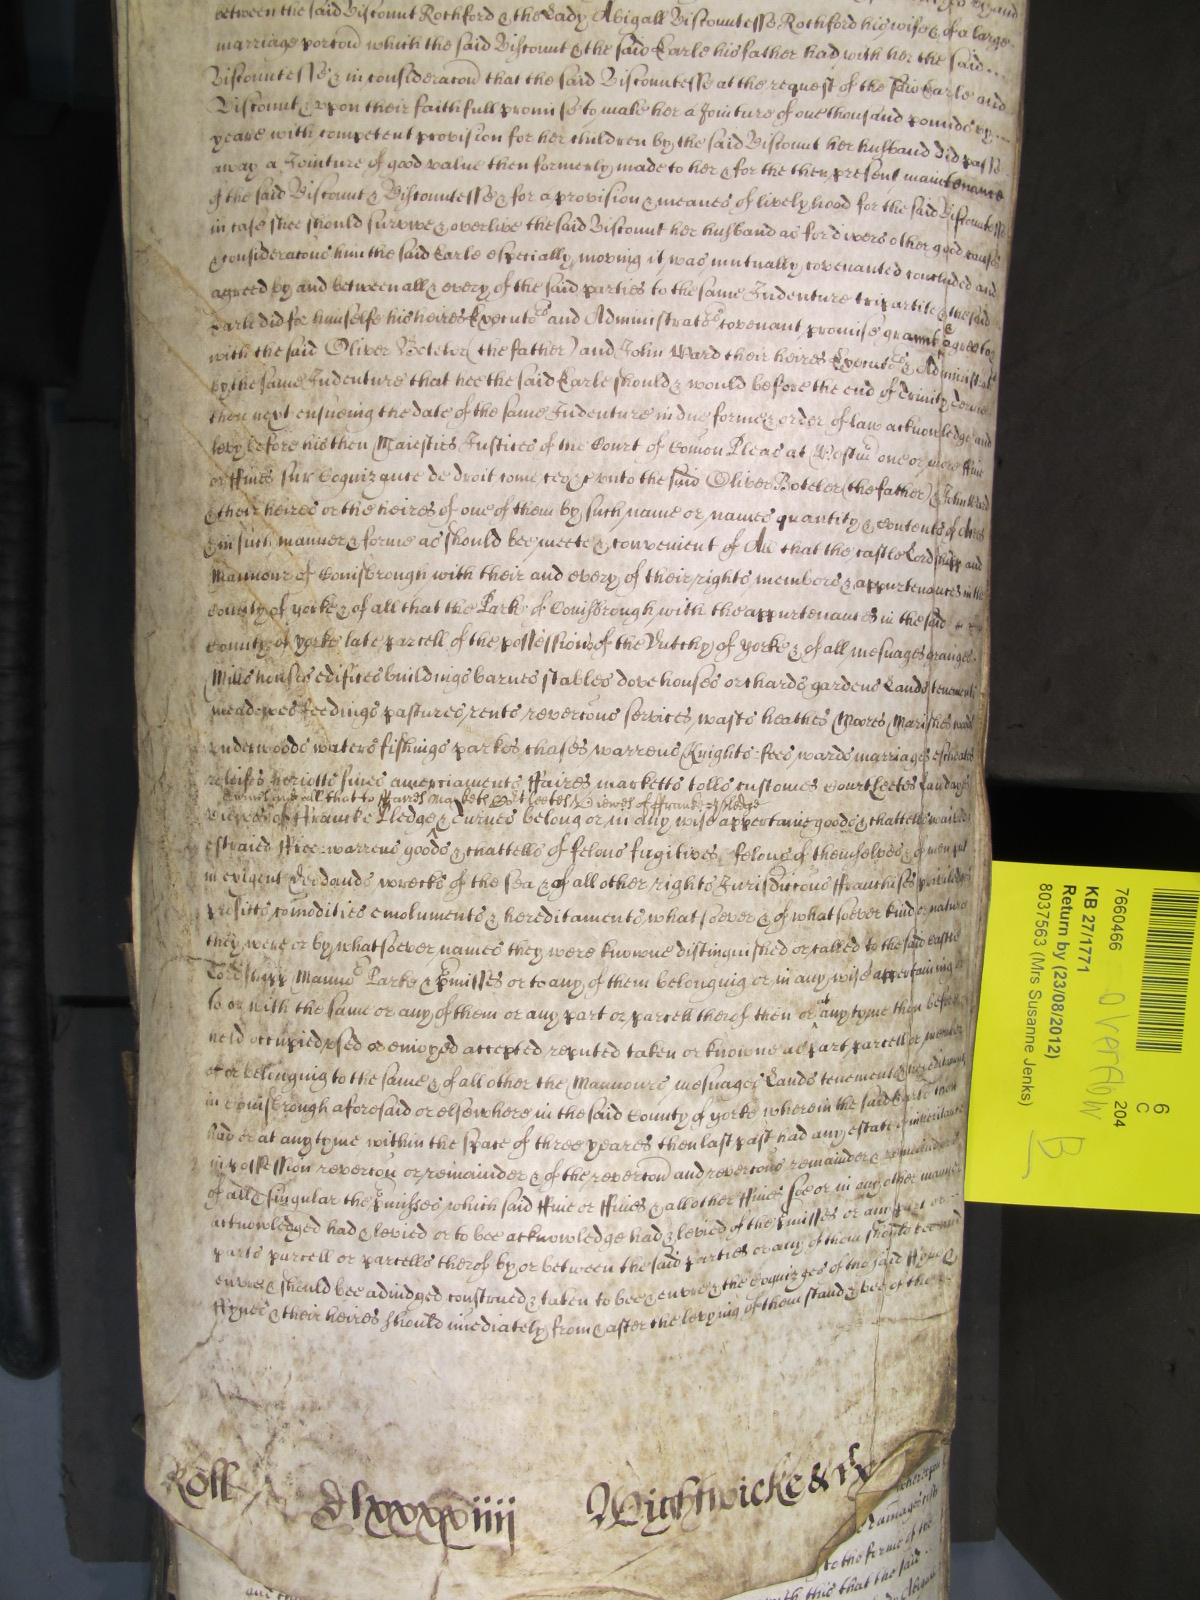 between the said Viscount Rochford & the Lady Abigall Viscountesse Rochford his wife & of a large
marriage portcon which the said Viscount & the said Earle his father had with her the said
Viscountesse & in consideracon that the said Viscountesse at the request of the said Earle and
Viscount & upon their faithfull promise to make her a Jointure of one thousand pounds by
yeare with competent provision for her children by the said Viscount her husband did passe
away a Jointure of good value then formerly made to her & for the then present maintenance
of the said Viscount & Viscountesse & for a provision & meanes of livelyhood for the said Viscountesse
in case shee should survive & overlive the said Viscount her husband as for divers other good causes
& consideracons him the said Earle especially moving it was mutually covenanted concluded and
agreed by and betweene all & every of the said parties to the same Indenture tripartite & the said
Earle did for himselfe his heires Executors and Administrators covenant promise graunt & agree to &
with the said Oliver Boteler (the father) and John Ward their heires Executors & Administrators
by the same Indenture that hee the said Earle should & would before the end of Trinity Terme
then next ensueing the date of the same Indenture in due forme & order of law acknowledge and
levy before his then Majesties Justices of the Court of Comon Pleas at Westmr one or more ffine
or ffines sur Cognizance de droit come ceo &c unto the said Oliver Boteler (the father) & John Ward
& their heires or the heires of one of them by such name or names quantity & contents of Acres
& in such manner & forme as should bee meete & convenient of All that the castle Lordshipp and
Mannour of Conisbrough with their and every of their rights members & appurtenances in the
County of yorke & of all that the Parke of Conisbrough with the appurtenances in the said
County of yorke late parcell of the possessions of the Dutchy of yorke & of all mesuages granges
Mills houses edifices buildings barnes stables dovehouses orchards gardens Lands tenements
meadowes feedings pastures rents revercons services wasts heathes Moores Marishes woods
underwoods waters fishings parkes chases warrens Knights fees wards marriages escheates
releifes heriotts fines amerciaments ffaires marketts tolls customes Court leetes Lawdayes
& unto all that to ffaires Marketts Court leetes & viewes of ffranke pledge
viewes of ffrancke Pledge & turnes belong or in any wise appertaine goods & chattells waived
estraied ffree warrens goods & chattells of felons fugitives felons of themselves & of men put
in exigent Deodands wrecks of the sea & of all other rights Jurisdiccons ffranchises priviledges
profitts comodities emoluments & hereditaments whatsoever & of whatsoever kind or nature
they were or by whatsoever names they were knowne distinguished or called to the said castle
Lordshipp Mannor Parke & pmisses or to any of them belonging or in any wise appertaining or
to or with the same or any of them or any part or parcell therof then or at any tyme then before
held occupied used or enioyed accepted reputed taken or knowne as part parcell or member
of or belonging to the same & of all other the Mannours mesuages Lands tenements & hereditaments
in Conisbrough aforesaid or elsewhere in the said County of yorke wherein the said Earle then
had or at any tyme within the space of three yeares then last past had any estate of inheritance
in possession revercon or remainder & of the revercon and revercons remainder & remainders
of all & singular the pmisses which said ffine or ffines & all other ffines soe or in any other manner
acknowledged had & levied or to bee acknowledged had & levied of the pmisses or any part or
parts parcell or parcells therof by or between the said parties or any of them should bee and
enure & should bee adiudged construed & taken to bee & enure & the Cognizees of the said ffyne &
ffynes & their heires should imediately from & after the levying of them stand & bee of the
Roll
dlxxxxiiii
Wightwicke & rx
to the forme of the
with this that the said
7660466
204
6
C
KB 27/1771
Return by (23/08/2012)
8037563 (Mrs Susanne Jenks)
B